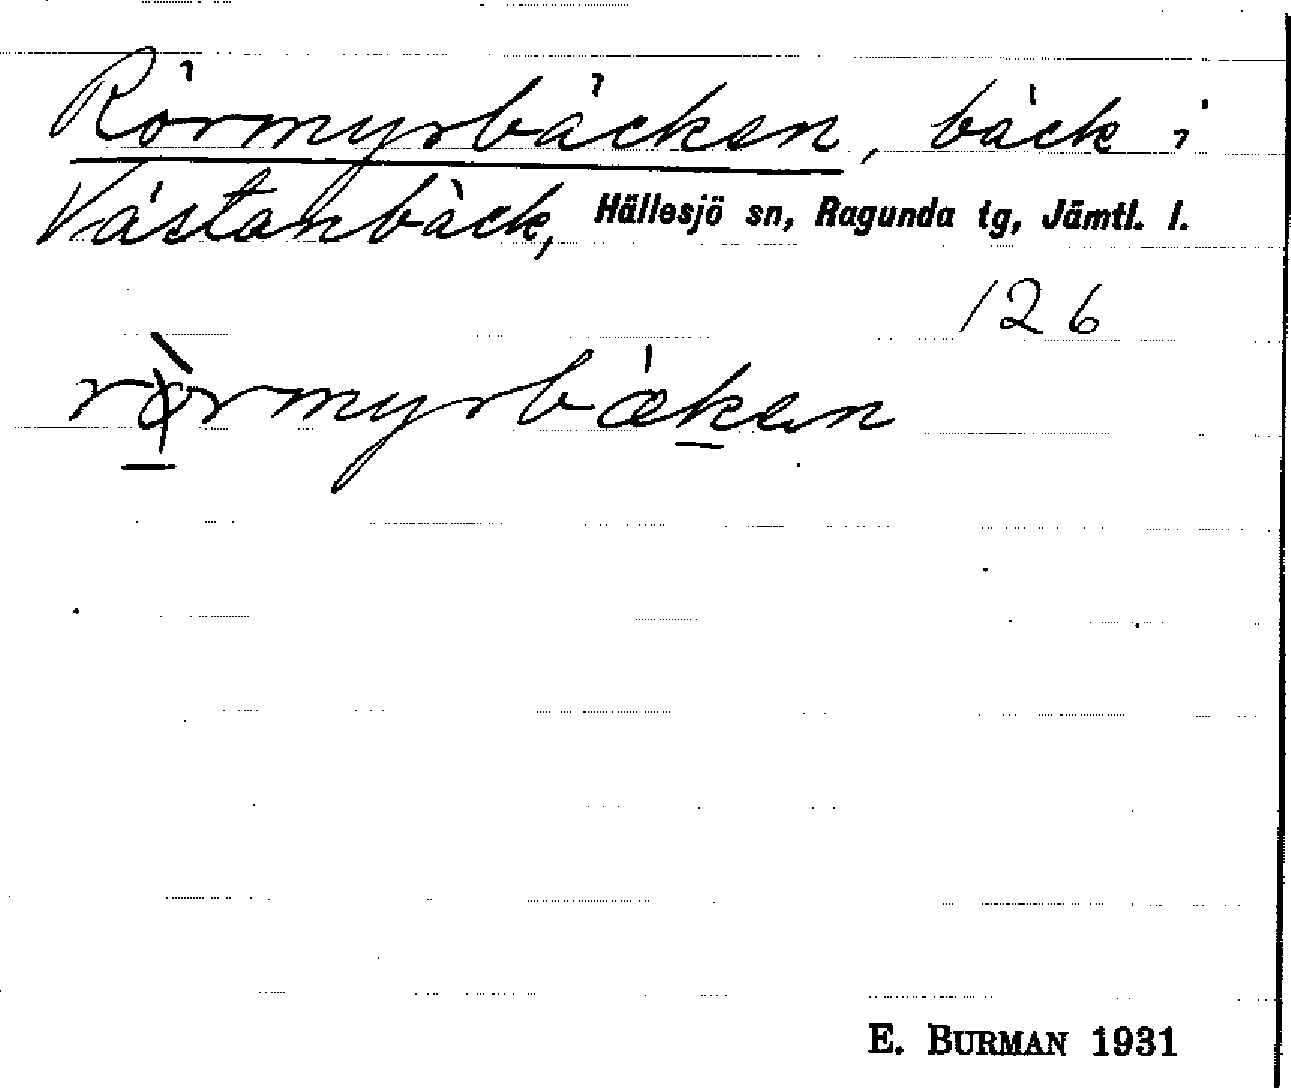 Rörmyrbäcken, bäck i
Västanbäck, Hällesjö sn, Ragunda tg, Jämtl. l.
126
rø̀rmyrbækan
E. BURMAN 1931